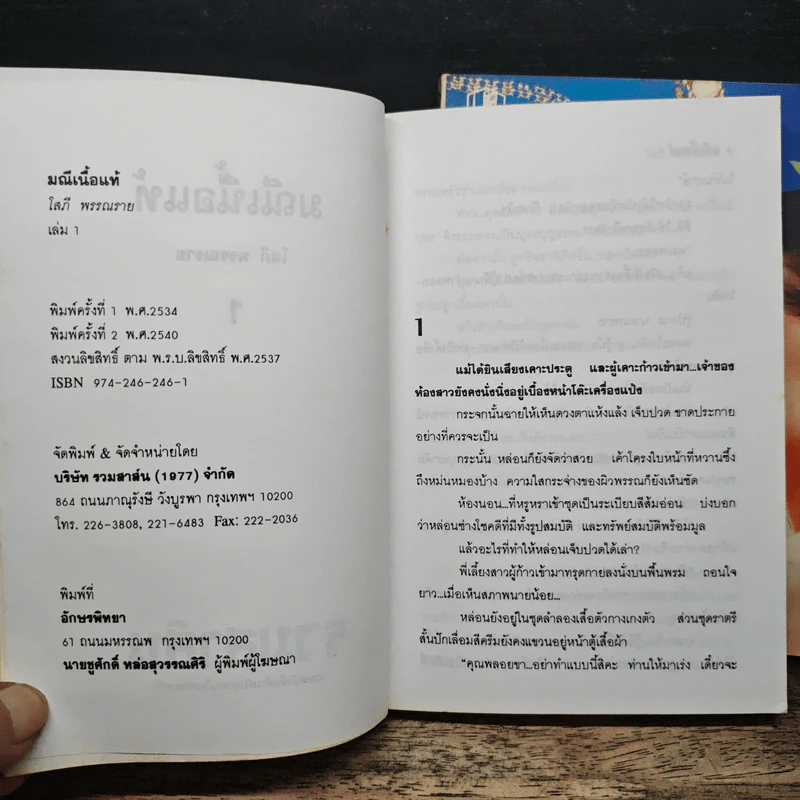 มณีเนื้อแท้
โสภี พรรณราย
เล่ม 1
พิมพ์ครั้งที่ 1 พ.ศ.2534
พิมพ์ครั้งที่ 2 พ.ศ.2540
สงวนลิขสิทธิ์ ตาม พ.ร.บ.ลิขสิทธิ์ พ.ศ.2537
ISBN 974-246-246-1
จัดพิมพ์ & จัดจำหน่ายโดย
บริษัท รวมสาส์น (1977) จำกัด
864 ถนนภาณุรังษี วังบูรพา กรุงเทพฯ 10200
โทร. 226-3808, 221-6483 Fax: 222-2036
พิมพ์ที่
อักษรพิทยา
61 ถนนมหรรณพ กรุงเทพฯ 10200
นายชูศักดิ์ หล่อสุวรรณศิริ ผู้พิมพ์ผู้โฆษณา
1
แม้ได้ยินเสียงเคาะประตู และผู้เคาะก้าวเข้ามา...เจ้าของ
ห้องสาวยังคงนั่งนิ่งอยู่เบื้องหน้าโต๊ะเครื่องแป้ง
กระจกนั้นฉายให้เห็นดวงตาแห้งแล้ง เจ็บปวด ขาดประกาย
อย่างที่ควรจะเป็น
กระนั้น หล่อนก็ยังจัดว่าสวย เค้าโครงใบหน้าที่หวานซึ้ง
ถึงหม่นหมองบ้าง ความใสกระจ่างของผิวพรรณก็ยังเห็นชัด
ห้องนอน...ที่หรูหราเข้าชุดเป็นระเบียบสีส้มอ่อน บ่งบอก
ว่าหล่อนช่างโชคดีที่มีทั้งรูปสมบัติ และทรัพย์สมบัติพร้อมมูล
แล้วอะไรที่ทำให้หล่อนเจ็บปวดได้เล่า?
พี่เลี้ยงสาวผู้ก้าวเข้ามาทรุดกายลงนั่งบนพื้นพรม ถอนใจ
ยาว...เมื่อเห็นสภาพนายน้อย...
หล่อนยังอยู่ในชุดลำลองเสื้อตัวกางเกงตัว ส่วนชุดราตรี
สั้นปักเลื่อมสีครีมยังคงแขวนอยู่หน้าตู้เสื้อผ้า
"คุณพลอยขา...อย่าทำแบบนี้สิคะ ท่านให้มาเร่ง เดี๋ยวจะ